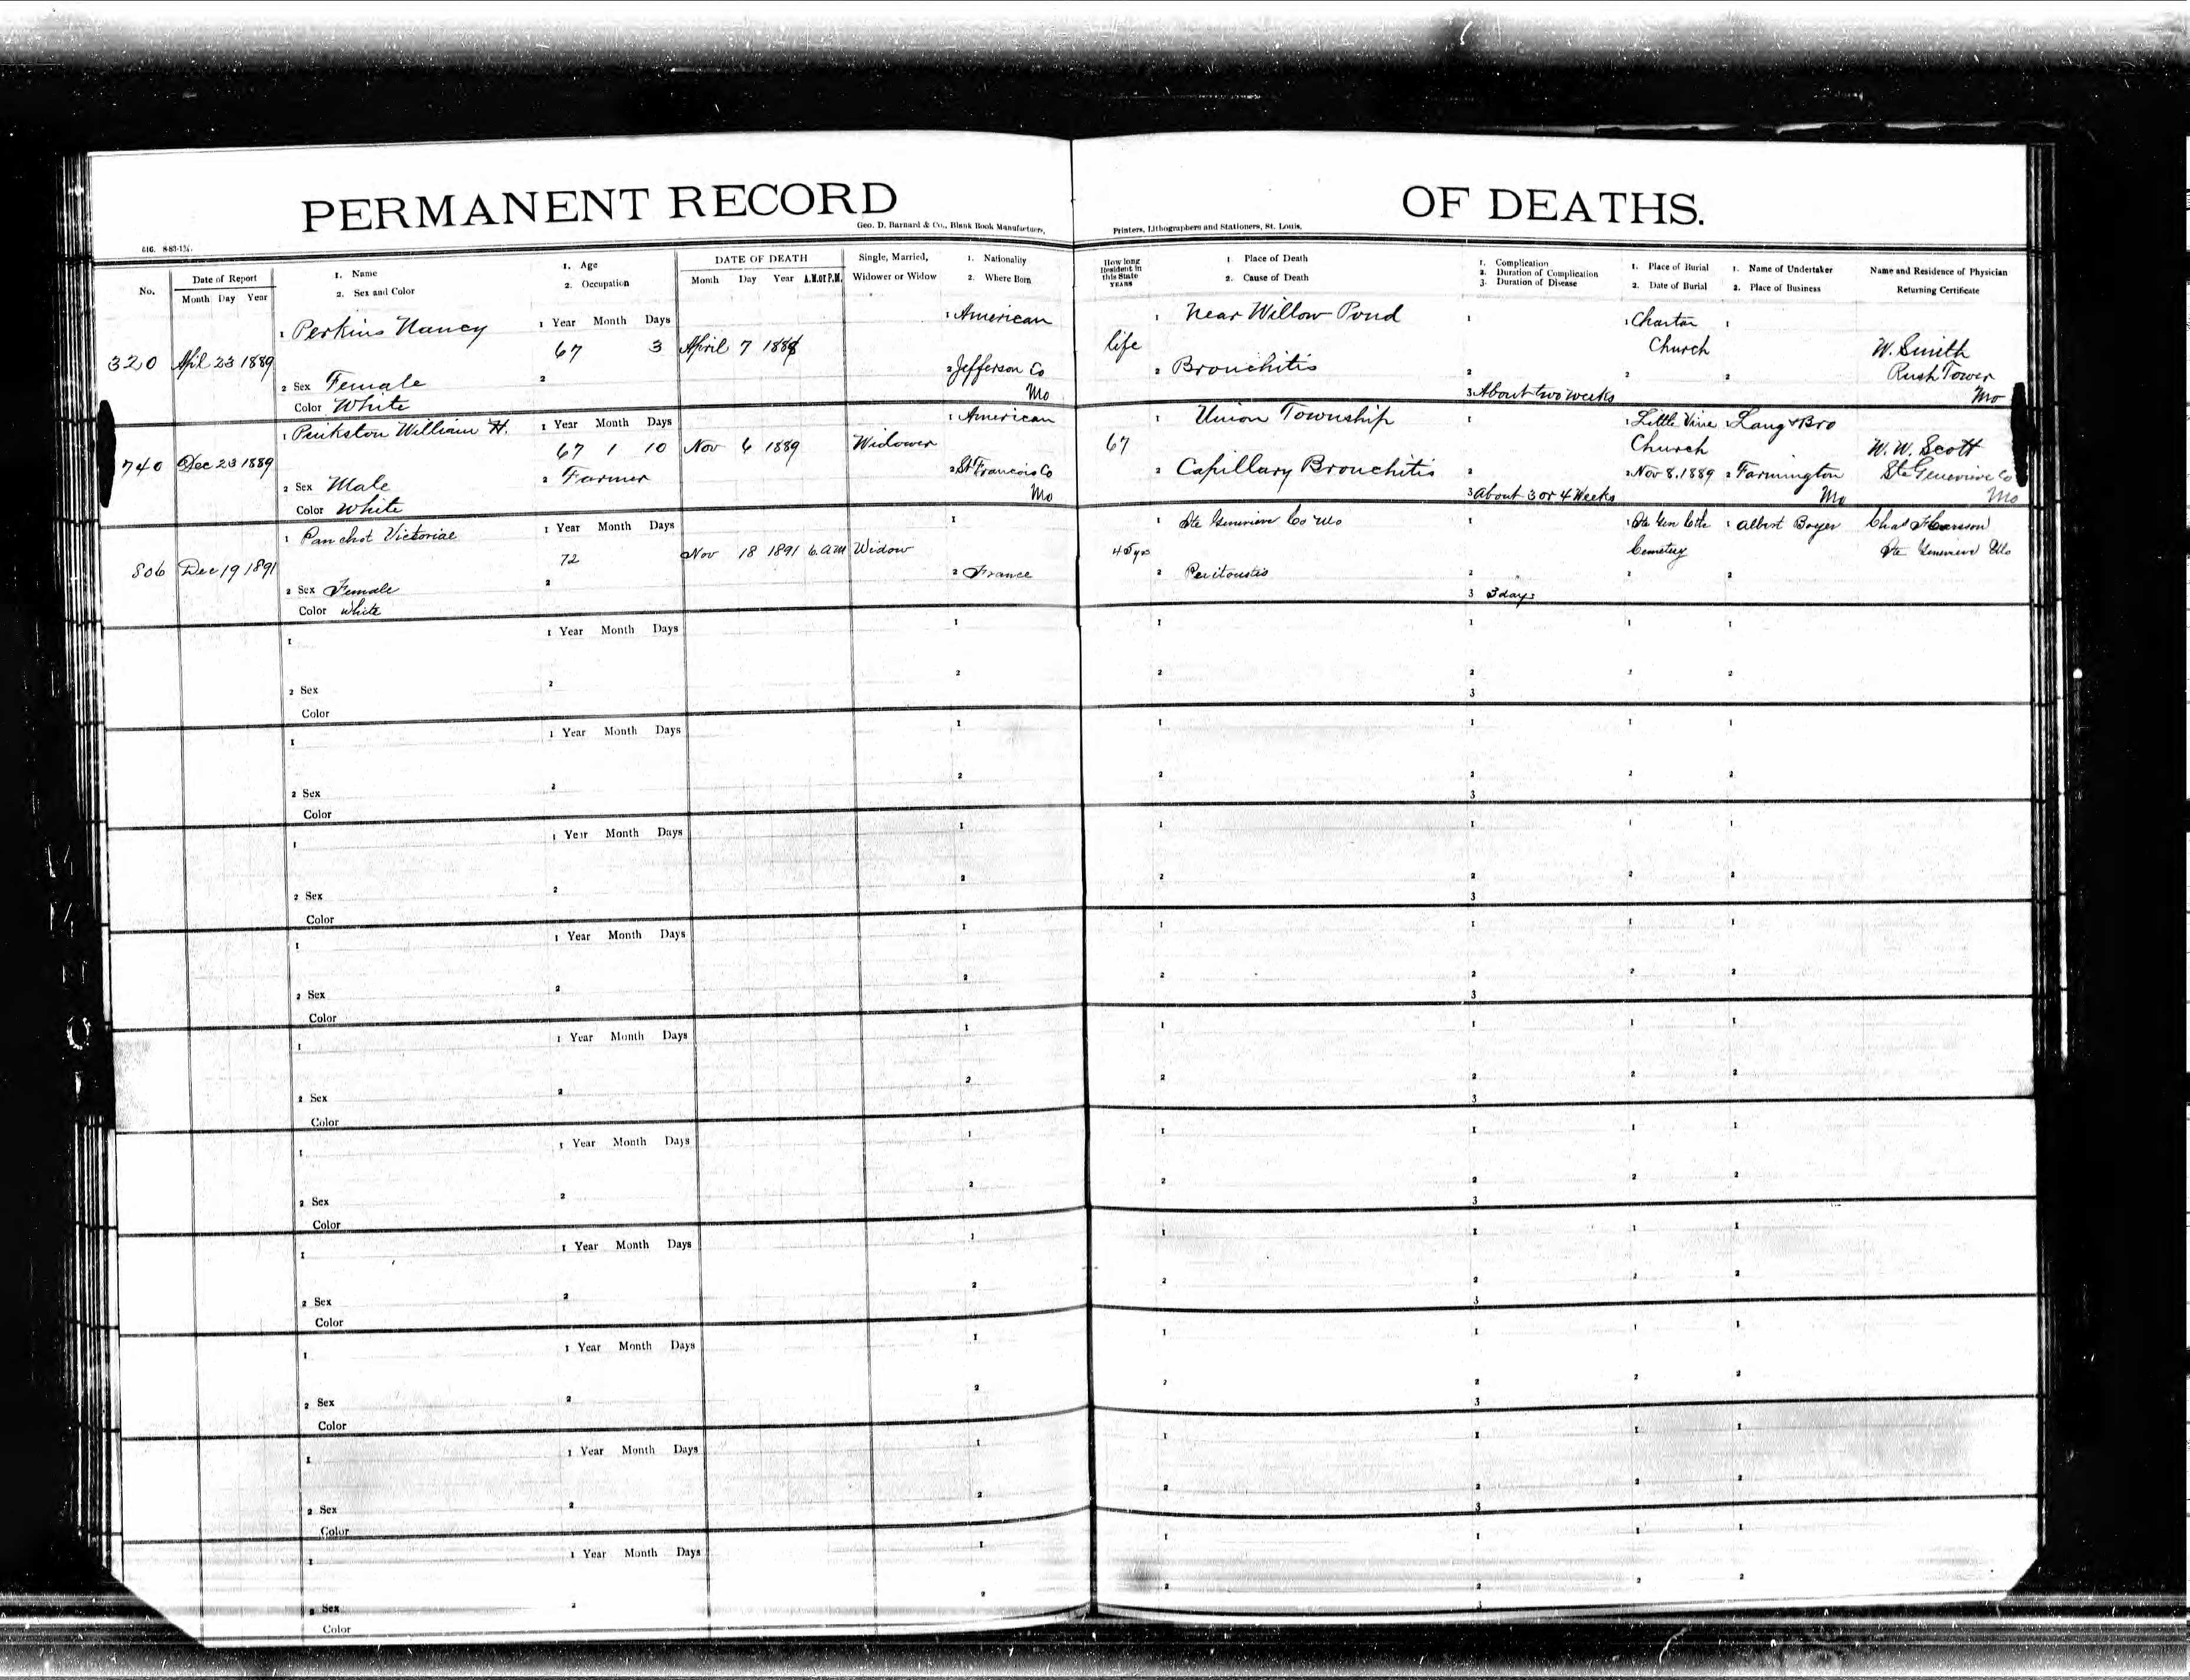 PERMANENT RECORD OF DEATHS.
Geo. D. Barnard & Co., Blank Book Manufacturers, Printers, Lithographers and Stationers, St. Louis.
No.
Date of Report
Month Day Year
1. Name
2. Sex and Color
1. Age
2. Occupation
DATE OF DEATH
Month Day Year A.M. or P.M.
Single, Married,
Widower or Widow
1. Nationality
2. Where Born
How long
Resident in
this State
YEARS
1 Place of Death
2. Cause of Death
1. Complication
2. Duration of Complication
3. Duration of Disease
1. Place of Burial
2. Date of Burial
1. Name of Undertaker
2. Place of Business
Name and Residence of Physician
Returning Certificate
320
Apil 23 1889
1 Perkins Nancy
2 Sex Female
Color White
1 Year Month Days
67 3
2
April 7 188
1 American
2 Jefferson Co
Mo
life
1 Near Willow Pond
2 Bronchitis
1
2
3 About two weeks
1 Charter
Church
2
1
2
W. Smith
Rush Tower
Mo
740
Dec 23 1889
1 Pinkston William H.
2 Sex Male
Color White
1 Year Month Days
67 1 10
2 Farmer
Nov 6 1889
Widower
1 American
2 St Francois Co
Mo
67
1 Union Township
2 Capillary Bronchitis
1
2
3 About 3 or 4 Weeks
1 Little Vine
Church
2 Nov 8. 1889
1 Lang & Bro
2 Farmington
Mo
W. W. Scott
Ste Genevieve Co
Mo
806
Dec 19 1891
1 Panchot Victoriae
2 Sex Female
Color white
1 Year Month Days
72
2
Nov 18 1891 6. am
Widow
1
2 France
45 yrs
1 Ste Genevieve Co Mo
2 Peritonitis
1
2
3 3 days
1 Ste Gen Cathe
Cemetery
2
1 Albert Boyer
2
Chas
Ste Genevieve Mo
1
2 Sex
Color
1 Year Month Days
2
1
2
1
2
1
2
3
1
2
1
2
1
2 Sex
Color
1 Year Month Days
2
1
2
1
2
1
2
3
1
2
1
2
1
2 Sex
Color
1 Year Month Days
2
1
2
1
2
1
2
3
1
2
1
2
1
2 Sex
Color
1 Year Month Days
2
1
2
1
2
1
2
3
1
2
1
2
1
2 Sex
Color
1 Year Month Days
2
1
2
1
2
1
2
3
1
2
1
2
1
2 Sex
Color
1 Year Month Days
2
1
2
1
2
1
2
3
1
2
1
2
1
2 Sex
Color
1 Year Month Days
2
1
2
1
2
1
2
3
1
2
1
2
1
2 Sex
Color
1 Year Month Days
2
1
2
1
2
1
2
3
1
2
1
2
1
2 Sex
Color
1 Year Month Days
2
1
2
1
2
1
2
3
1
2
1
2
1
2 Sex
Color
1 Year Month Days
2
1
2
1
2
1
2
3
1
2
1
2